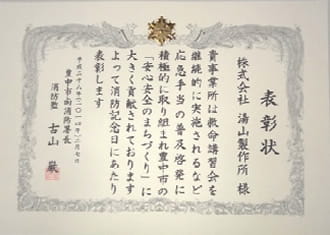 表彰状
株式会社 湯山製作所 様
貴事業所は救命講習会を
継続的に実施されるなど
応急手当の普及啓発に
積極的に取り組まれ豊中市の
「安心安全のまちづくり」に
大きく貢献されております
よって消防記念日にあたり
表彰します
平成二十八年（二〇一六年）三月七日
豊中市南消防署長
消防監 古山 巌